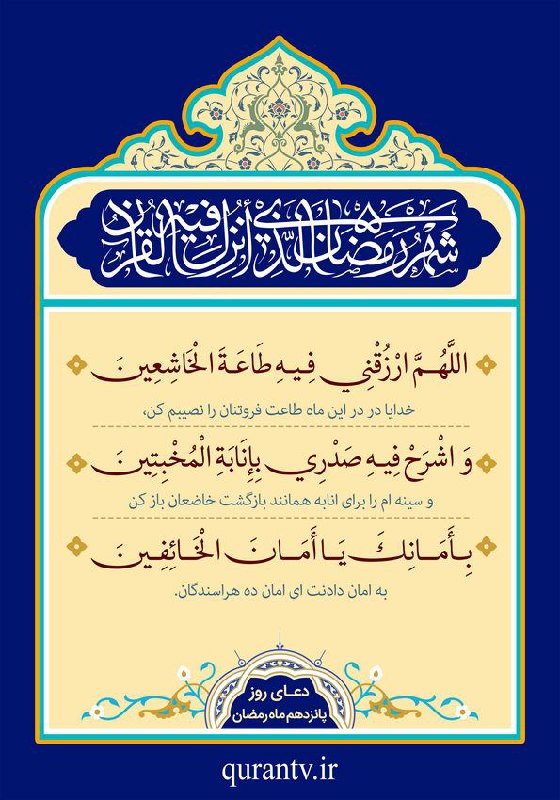 شهر رمضان الذي أنزل فيه القرآن
اللَّهُمَّ ارْزُقْنِي فِيهِ طَاعَةَ الْخَاشِعِينَ
خدایا در در این ماه طاعت فروتنان را نصیبم کن،
وَ اشْرَحْ فِيهِ صَدْرِي بِإِنَابَةِ الْمُخْبِتِينَ
و سینه ام را برای انابه همانند بازگشت خاضعان باز کن
بِأَمَانِكَ يَا أَمَانَ الْخَائِفِينَ
به امان دادنت ای امان ده هراسندگان.
دعـای روز
پانزدهم ماه رمضان
qurantv.ir